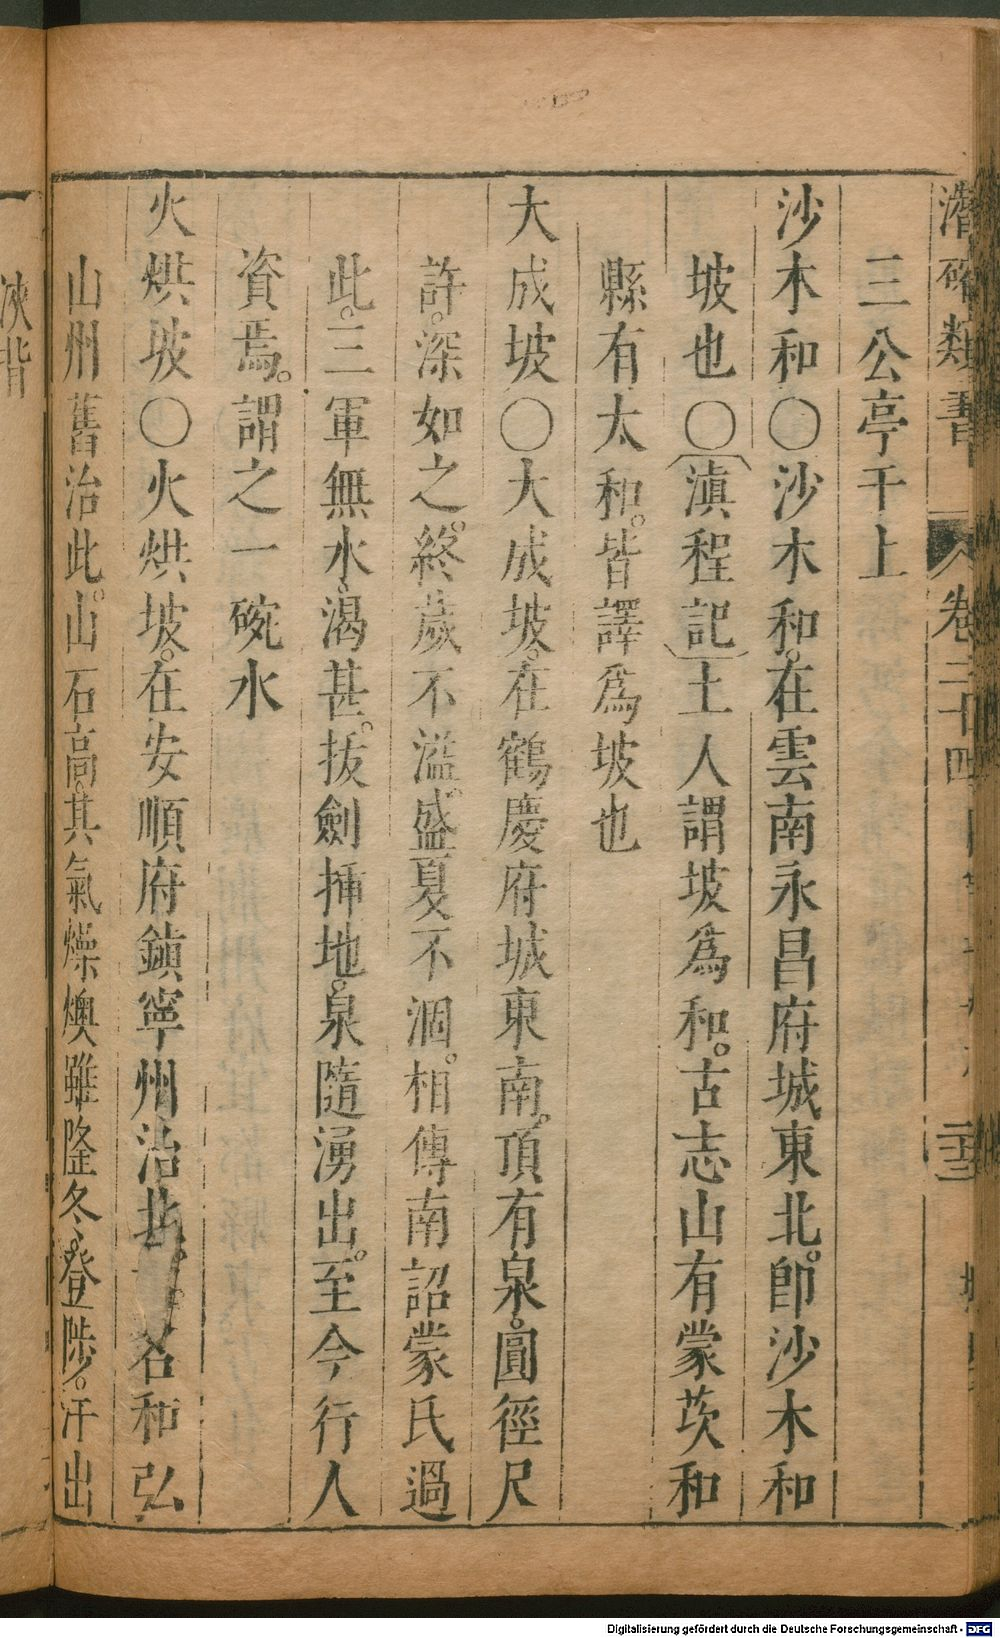 潛確類書 卷二十四
三公亭于上
沙木和〇沙木和。在雲南永昌府城東北。即沙木和
坡也〇滇程記土人謂坡爲和。古志山有蒙茨和
縣有太和。皆譯爲坡也
大成坡〇大成坡。在鶴慶府城東南。頂有泉。圓徑尺
許。深如之。終歲不溢。盛夏不涸。相傳南詔蒙氏過
此。三軍無水。渴甚。拔劍揷地。泉隨湧出。至今行人
資焉。謂之一碗水
火烘坡〇火烘坡。在安順府鎮寧州治北。名和弘
山州舊治此。山石高。其氣燥燠雖隆冬。登陟。汗出
浹背
Digitalisierung gefördert durch die Deutsche Forschungsgemeinschaft - DFG